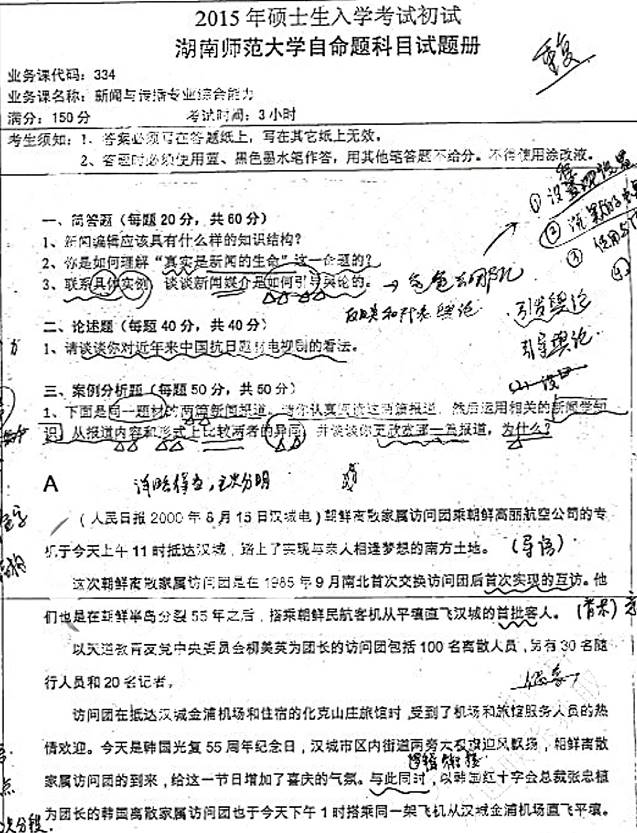 2015年硕士生入学考试初试
湖南师范大学自命题科目试题册
重复
业务课代码：334
业务课名称：新闻与传播专业综合能力
满分：150分 考试时间：3小时
考生须知：1、答案必须写在答题纸上，写在其它纸上无效。
2、答题时必须使用蓝、黑色墨水笔作答，用其他笔答题不给分。不得使用涂改液。
一、简答题（每题20分，共60分）
1、新闻编辑应该具有什么样的知识结构？
2、你是如何理解“真实是新闻的生命”这一命题的？
3、联系具体实例，谈谈新闻媒介是如何引导舆论的。
引发舆论
引导舆论
二、论述题（每题40分，共40分）
1、请谈谈你对近年来中国抗日题材电视剧的看法。
三、案例分析题（每题50分，共50分）
1、下面是同一题材的两篇新闻报道，请你认真阅读这两篇报道，然后运用相关的新闻学知
识，从报道内容和形式上比较两者的异同，并谈谈你更欣赏哪一篇报道，为什么？
A 详略得当，主次分明
（人民日报2000年8月15日汉城电）朝鲜离散家属访问团乘朝鲜高丽航空公司的专
机于今天上午11时抵达汉城，踏上了实现与亲人相逢梦想的南方土地。（导语）
这次朝鲜离散家属访问团是在1985年9月南北首次交换访问团后首次实现的互访。他
们也是在朝鲜半岛分裂55年之后，搭乘朝鲜民航客机从平壤直飞汉城的首批客人。（背景）
以天道教青友党中央委员会柳美英为团长的访问团包括100名离散人员，另有30名随
行人员和20名记者。
访问团在抵达汉城金浦机场和住宿的华克山庄旅馆时，受到了机场和旅馆服务人员的热
情欢迎。今天是韩国光复55周年纪念日，汉城市区内街道两旁太极旗迎风飘扬，朝鲜离散
家属访问团的到来，给这一节日增加了喜庆的气氛。与此同时，以韩国红十字会总裁张忠植
为团长的韩国离散家属访问团也于今天下午1时搭乘同一架飞机从汉城金浦机场直飞平壤。